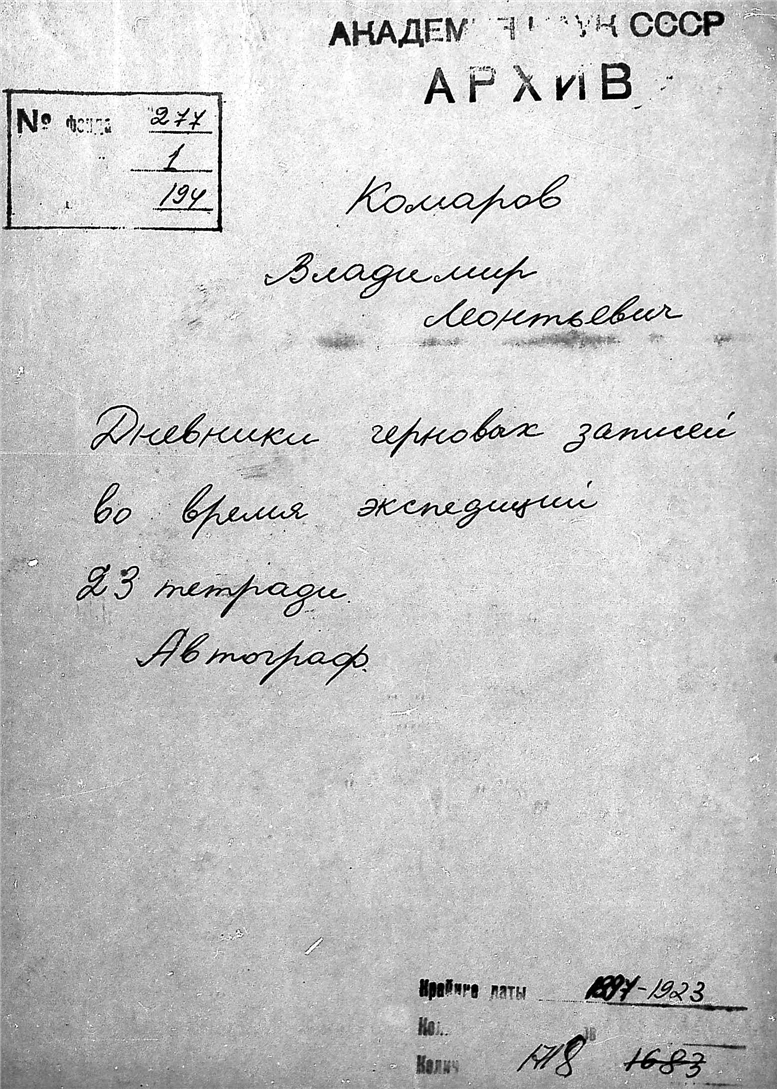 АКАДЕМИЯ НАУК СССР
АРХИВ
№ фонда 277
" 1
194
Комаров
Владимир
Леонтьевич
Дневники черновых записей
во время экспедиций
23 тетради.
Автограф.
Крайние даты 1897-1923
Кол.
Колич 1718 1683